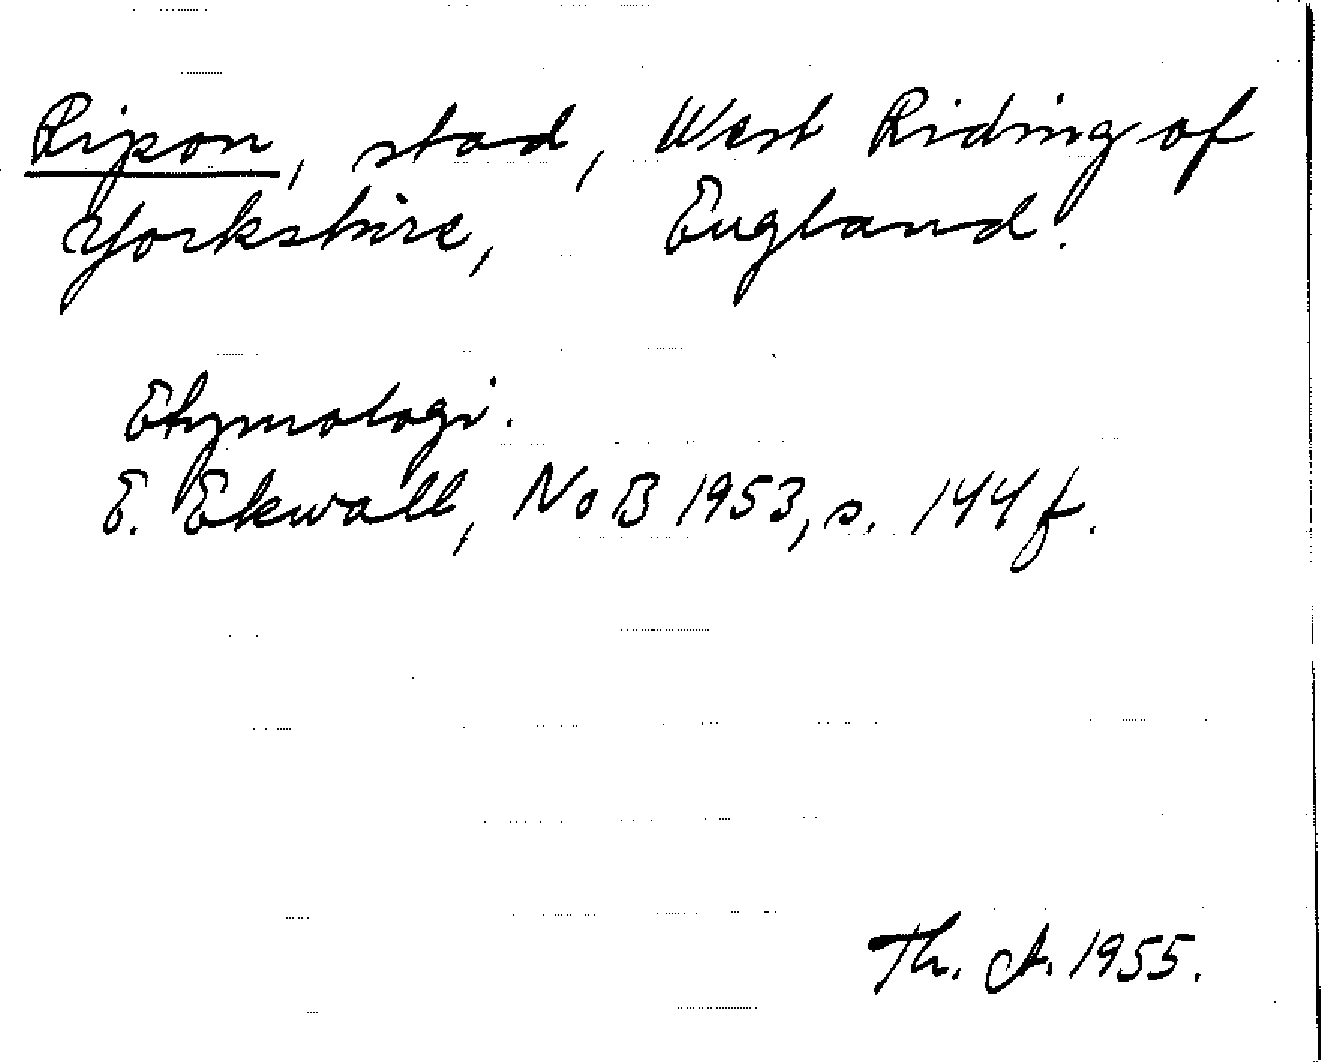 Ripon, stad, West Riding of
Yorkshire, England.
Etymologi.
E. Ekwall, NoB 1953, s. 144 f.
Th. A. 1955.